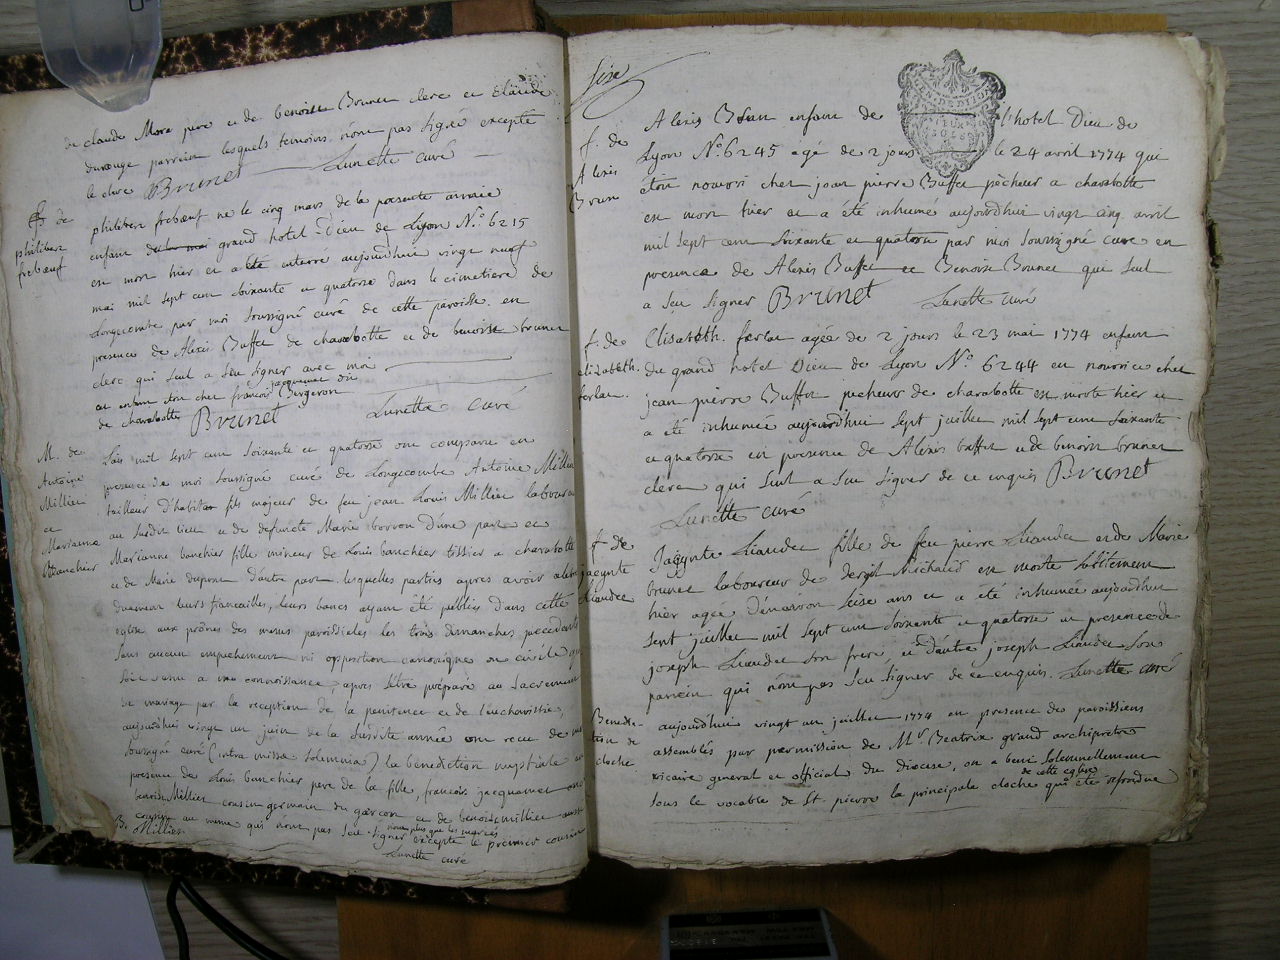 de claude More pere et de benoitte Brunet clerc et Claude
duronge parrein lesquels temoins n'ont pas signé excepté
le clerc Brunet Lunette curé
f. de
philibert
frebœuf
philibert frebœuf né le cinq mars de la presente année
enfant grand hotel-Dieu de Lyon N.º 6215
est mort hier et a été enterré aujourdhui vingt neuf
mai mil sept cent soixante et quatorse dans le cimetiere de
Longecombe par moi soussigné curé de cette paroisse en
presence de Alexis Buffet de charabotte et de benoist brunet
clerc qui seul a sçu signer avec moi
jacquemet dit
cet enfant etoit chez françois Bergeron
de charabotte Brunet Lunette curé
M. de
Antoine
Millier
et
Marianne
Banchier
L'an mil sept cent soixante et quatorse ont comparu en
presence de moi soussigné curé de Longecombe Antoine Millier
tailleur d'habitar fils majeur de feu jean Louis Millier laboureur
au susdit lieu et de defuncte Marie borron d'une part et
Marianne banchier fille mineur de Louis banchier tissier a charabotte
et de Marie dupont d'autre part, lesquelles parties apres avoir
duement leurs fiancailles, leurs bancs ayant été publiés dans cette
eglise aux prônes des messes paroissiales les trois dimanches précedents
sans aucun empechement ni opposition canonique ou civile qui
soit venu a ma connoissance, apres s'être préparé au sacrement
de mariage par la reception de la penitence et de l'eucharistie,
aujourdhui vingt un juin de la susdite année ont recu de moi
soussigné curé (intra missæ solemnia) la benediction nuptiale en
presence de Louis banchier pere de la fille, francois jacquemet
benoit Millier cousin germain du garcon et de benoit millier aussi
cousin au meme qui n'ont pas sçu signer
non plus que les mariés
excepté le premier cousin
B. Millier
Lunette curé
seize
f. de
Alexis
Brun
Alexis Brun enfant de l'hotel Dieu de
Lyon N.º 6245 agé de 2 jours le 24 avril 1774 qui
étoit nourri chez jean pierre Buffet pêcheur a charabotte
est mort hier et a été inhumé aujourdhui vingt cinq avril
mil sept cent soixante et quatorse par moi soussigné curé en
presence de Alexis Buffet et Benoist Brunet qui seul
a sçu signer Brunet Lunette curé
f. de
elizabeth
ferlat
Elisabeth ferlat agée de 2 jours le 23 mai 1774 enfant
du grand hotel Dieu de Lyon N.º 6244 en nourrice chez
jean pierre Buffet pecheur de charabotte est morte hier et
a été inhumée aujourdhui sept juillet mil sept cent soixante
et quatorse en presence de Alexis buffet et de benoist brunet
clerc qui seul a sçu signer de ce enquis Brunet
Lunette curé
f. de
jacynte
Liaudet
Jacynte Liaudet fille de feu pierre Liaudet et de Marie
brunet laboureur de Michaud est morte subitement
hier agée d'environ seise ans et a été inhumée aujourdhui
sept juillet mil sept cent soixante et quatorse en presence de
joseph Liaudet son frere, et d'autre joseph Liaudet son
parrein qui n'ont pas sçu signer de ce enquis. Lunette curé
Benedic-
tion de
cloche
aujourdhui vingt un juillet 1774 en presence des paroissiens
assemblés par permission de Mr Beatrix grand archiprêtre
vicaire general et official du diocese, on a beni solemnellement
sous le vocable de St. pierre la principale cloche
de cette eglise
qui a été refondue